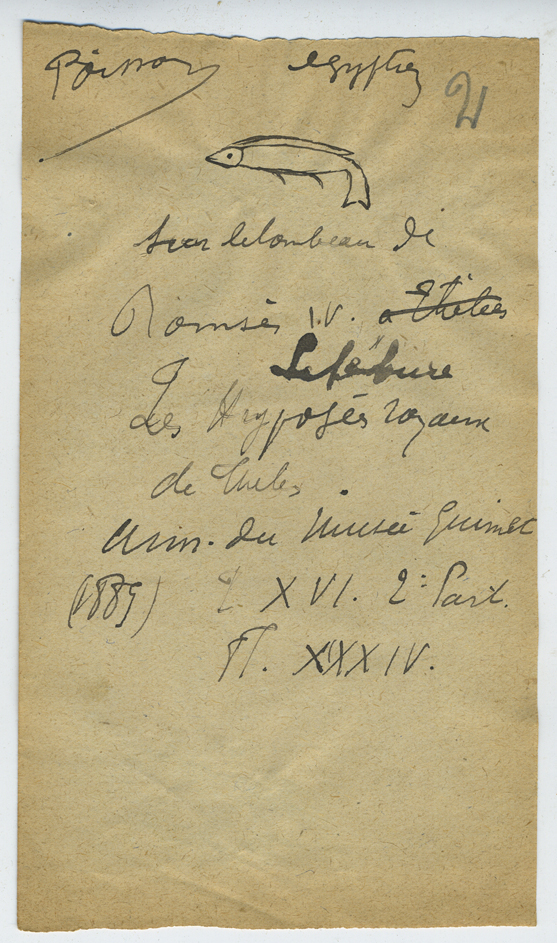 Poisson égyptien 21
sur letombeau de
Ramsès IV. a Thèbes
Lefébure
Les Hypogés royaux
de Thebes
Ann. du Musée Guimet
(1889) T. XVI. 2e Part.
Pl. XXXIV.